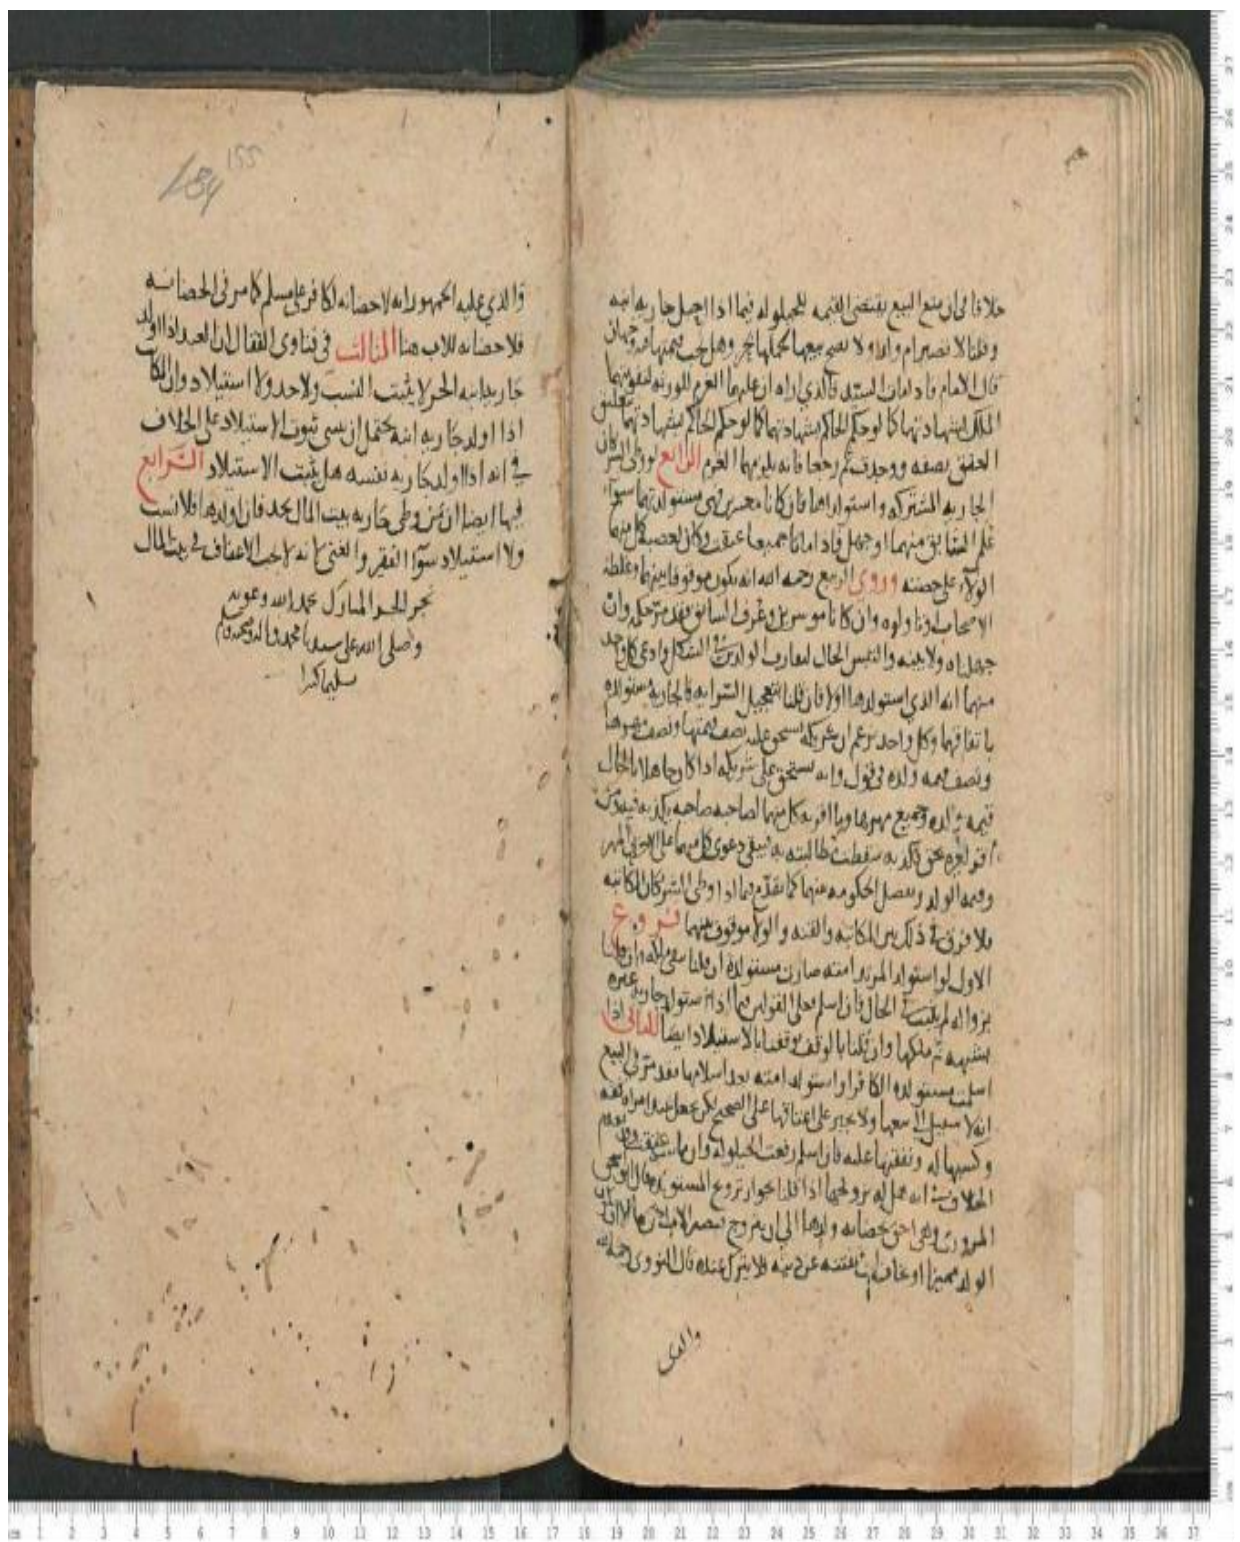 خلافا في ان منع البيع يقتضي القيمه للحيلوله فيما اذا احبل جاريه ابنه
وقلنا لا تصير ام ولد ولا يصح بيعها لحملها بحر وهل تجب قيمتها فيه وجهان
قال الامام فاذا مات السيد فالذي اراه ان عليهما الغرم للورثه
الملك بشهادتهما كما لو حكم الحاكم بشهادتهما كما لو حكم الحاكم بشهادتهما بتعليق
العتق بصفه ووجدت ثم رجعا فانه يلزمهما الغرم الرابع لو وطئ الشريكان
الجاريه المشتركه واستولداها فان كانا معسرين فهي مستولدتهما سوآء
علم السابق منهما او جهل فاذا ماتا جميعا عتقت وكان لعصبة كل منهما
الولآء على حصته وروى الربيع رحمه الله انه يكون موقوفا بينهما وغلطه
الاصحاب او تاولوه وان كانا موسرين وعرف السابق فقد مر حكمه وان
جهلناه ولا بينه والتبس الحال لتقارب الولدين في الشكل وادعى كل واحد
منهما انه الذي استولدها اولا فان قلنا بتعجيل السرايه فالجاريه مستولده
باتفاقهما وكل واحد يزعم ان شريكه يستحق عليه نصف قيمتها ونصف مهرها
ونصف قيمه ولده في قول وانه يستحق على شريكه اذا كان جاهلا بالحال
قيمه ولده وجميع مهرها وما اقر به كل منهما لصاحبه صاحبه يكذبه فيه ومن
اقر لغيره بحق فكذبه سقطت مطالبته به فيبقى دعوى كل منهما على الاخر في المهر
وقيمه الولد وتفصل الحكومه بينهما كما تقدم فيما اذا وطئ الشريكان المكاتبه
فلا فرق في ذلك بين المكاتبه والقنه والولآ موقوف بينهما فروع
الاول لو استولد المرتد امته صارت مستولدة ان قلنا ببقى ملكه وان قلنا
بزواله لم يثبت في الحال فان اسلم فعلى القولين فيما اذا استولد جاريه غيره
بشبهه ثم ملكها وان قلنا بالوقف توقفنا بالاستيلاد ايضا الثاني اذا
اسلمت مستولده الكافر او استولد امته بعد اسلامها فقد مر في البيع
انه لا سبيل الى بيعها ولا يجبر على اعتاقها على الصحيح لكن تجعل عند امراه ثقه
وكسبها له ونفقتها عليه فان اسلم رفعت الحيلوله وان مات عتقت وقد تقدم
الخلاف في انه هل له تزويجها اذا قلنا بجواز تزويج المستولده وقال ابو اسحق
المروزي وهي احق بحضانه ولدها الى ان تتزوج فيصير الاب احق بها الا ان كان
الولد مميزا او خاف ان تفتنه عن دينه فلا يترك عنده قال النووي رحمه الله
والذي
155
والذي عليه الجمهور انه لا حضانه لكافر على مسلم كما مر في الحضانه
فلا حضانه للاب هنا الثالث في فتاوى القفال ان العبد اذا اولد
جاريه ابنه الحر لا يثبت النسب ولا حد ولا استيلاد وان المكاتب
اذا اولد جاريه ابنه يحتمل ان يبنى ثبوت الاستيلاد على الخلاف
في انه اذا اولد جاريه نفسه هل يثبت الاستيلاد الرابع
فيها ايضا ان من وطئ جاريه بيت المال يحد فان اولدها فلا نسب
ولا استيلاد سوآ الفقير والغني لانه لا يجب الاعفاف في بيت المال
نجز الجزء المبارك بحمد الله وعونه
وصلى الله على سيدنا محمد واله وصحبه وسلم
تسليما كثيرا